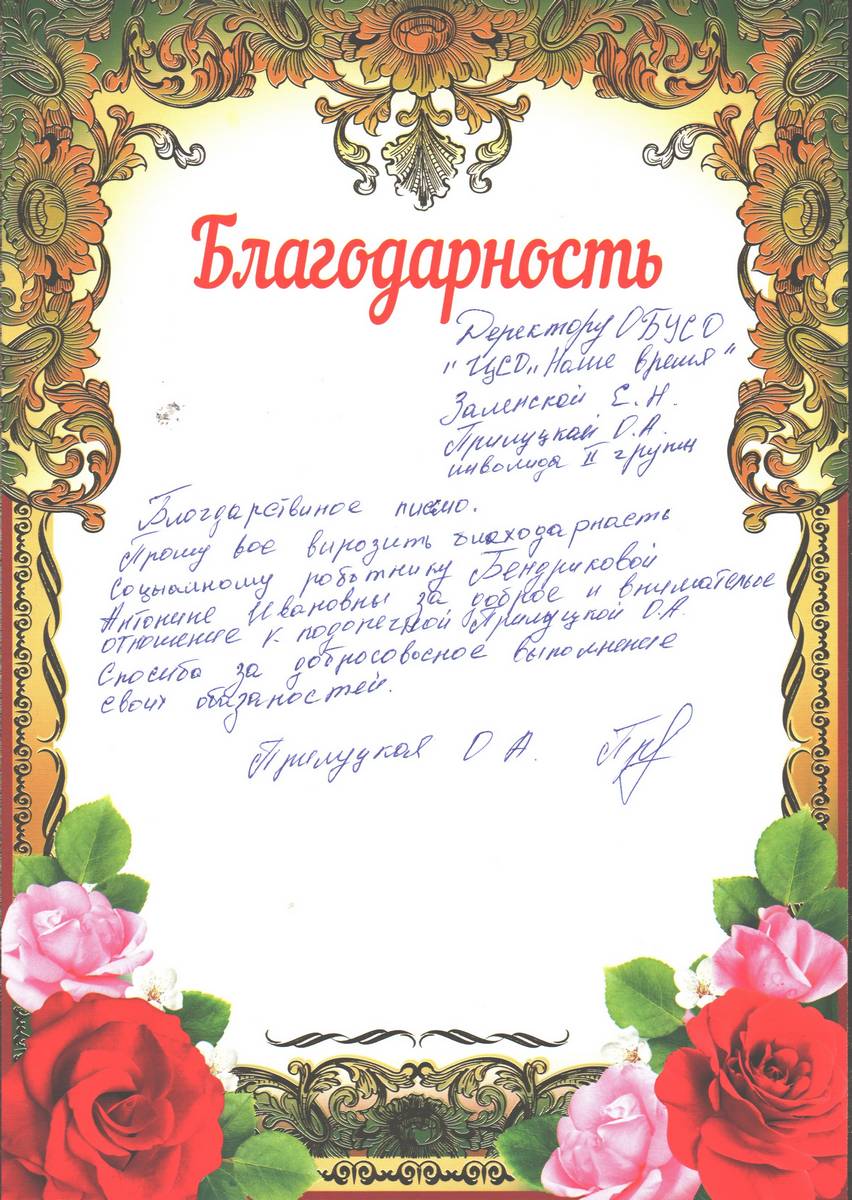 Благодарность
Деректору ОБУСО
"ЦСО„Наше время"
Заленской Е.Н.
Прилуцкай О.А.
инволида II групы
Блогдарствиное писмо.
Прошу вас вирозить благходарность
социалному роботнику Бендриковой
Антонине Ивановны за доброе и внимательое
отношение к подопечной Прилуцкой О.А.
Спосиба за добросовосное выполнение
своих обизаностей.
Прилуцкая О А.